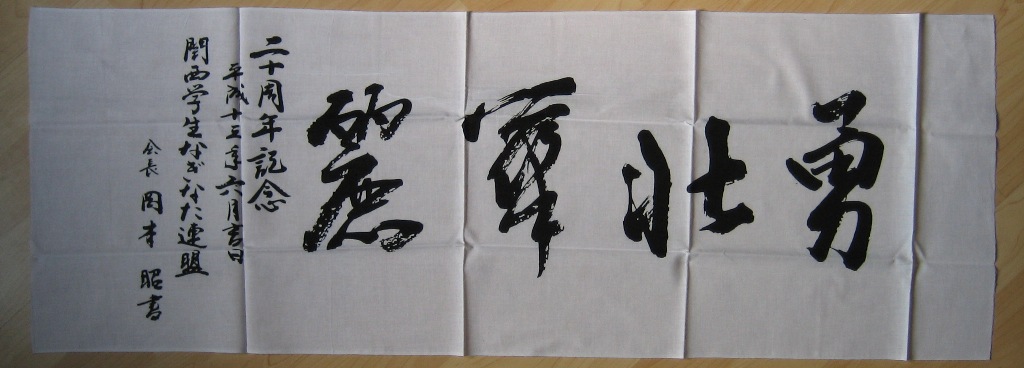 勇壮華麗
二十周年記念
平成十三年六月吉日
関西学生なぎなた連盟
会長 岡本 昭書